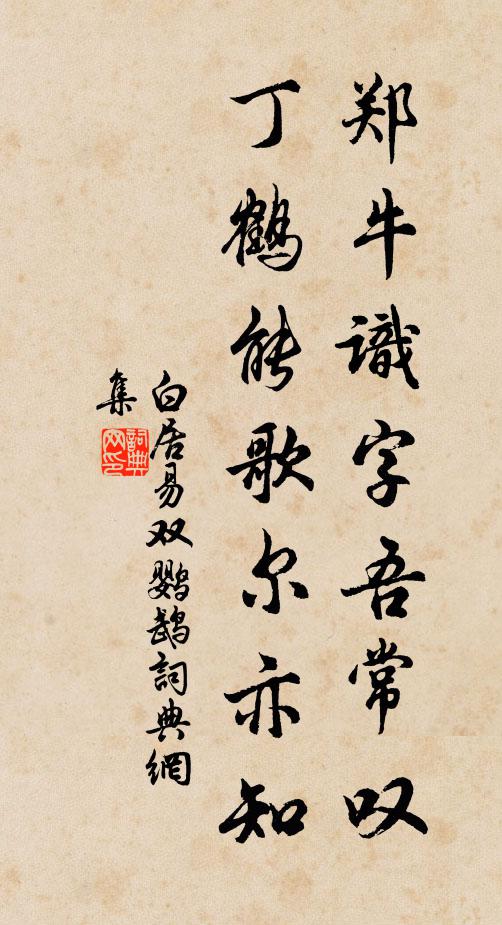 郑牛識字吾常叹
丁鶴能歌尔亦知
白居易双鹦鹉詞典網
集
詞典
网印